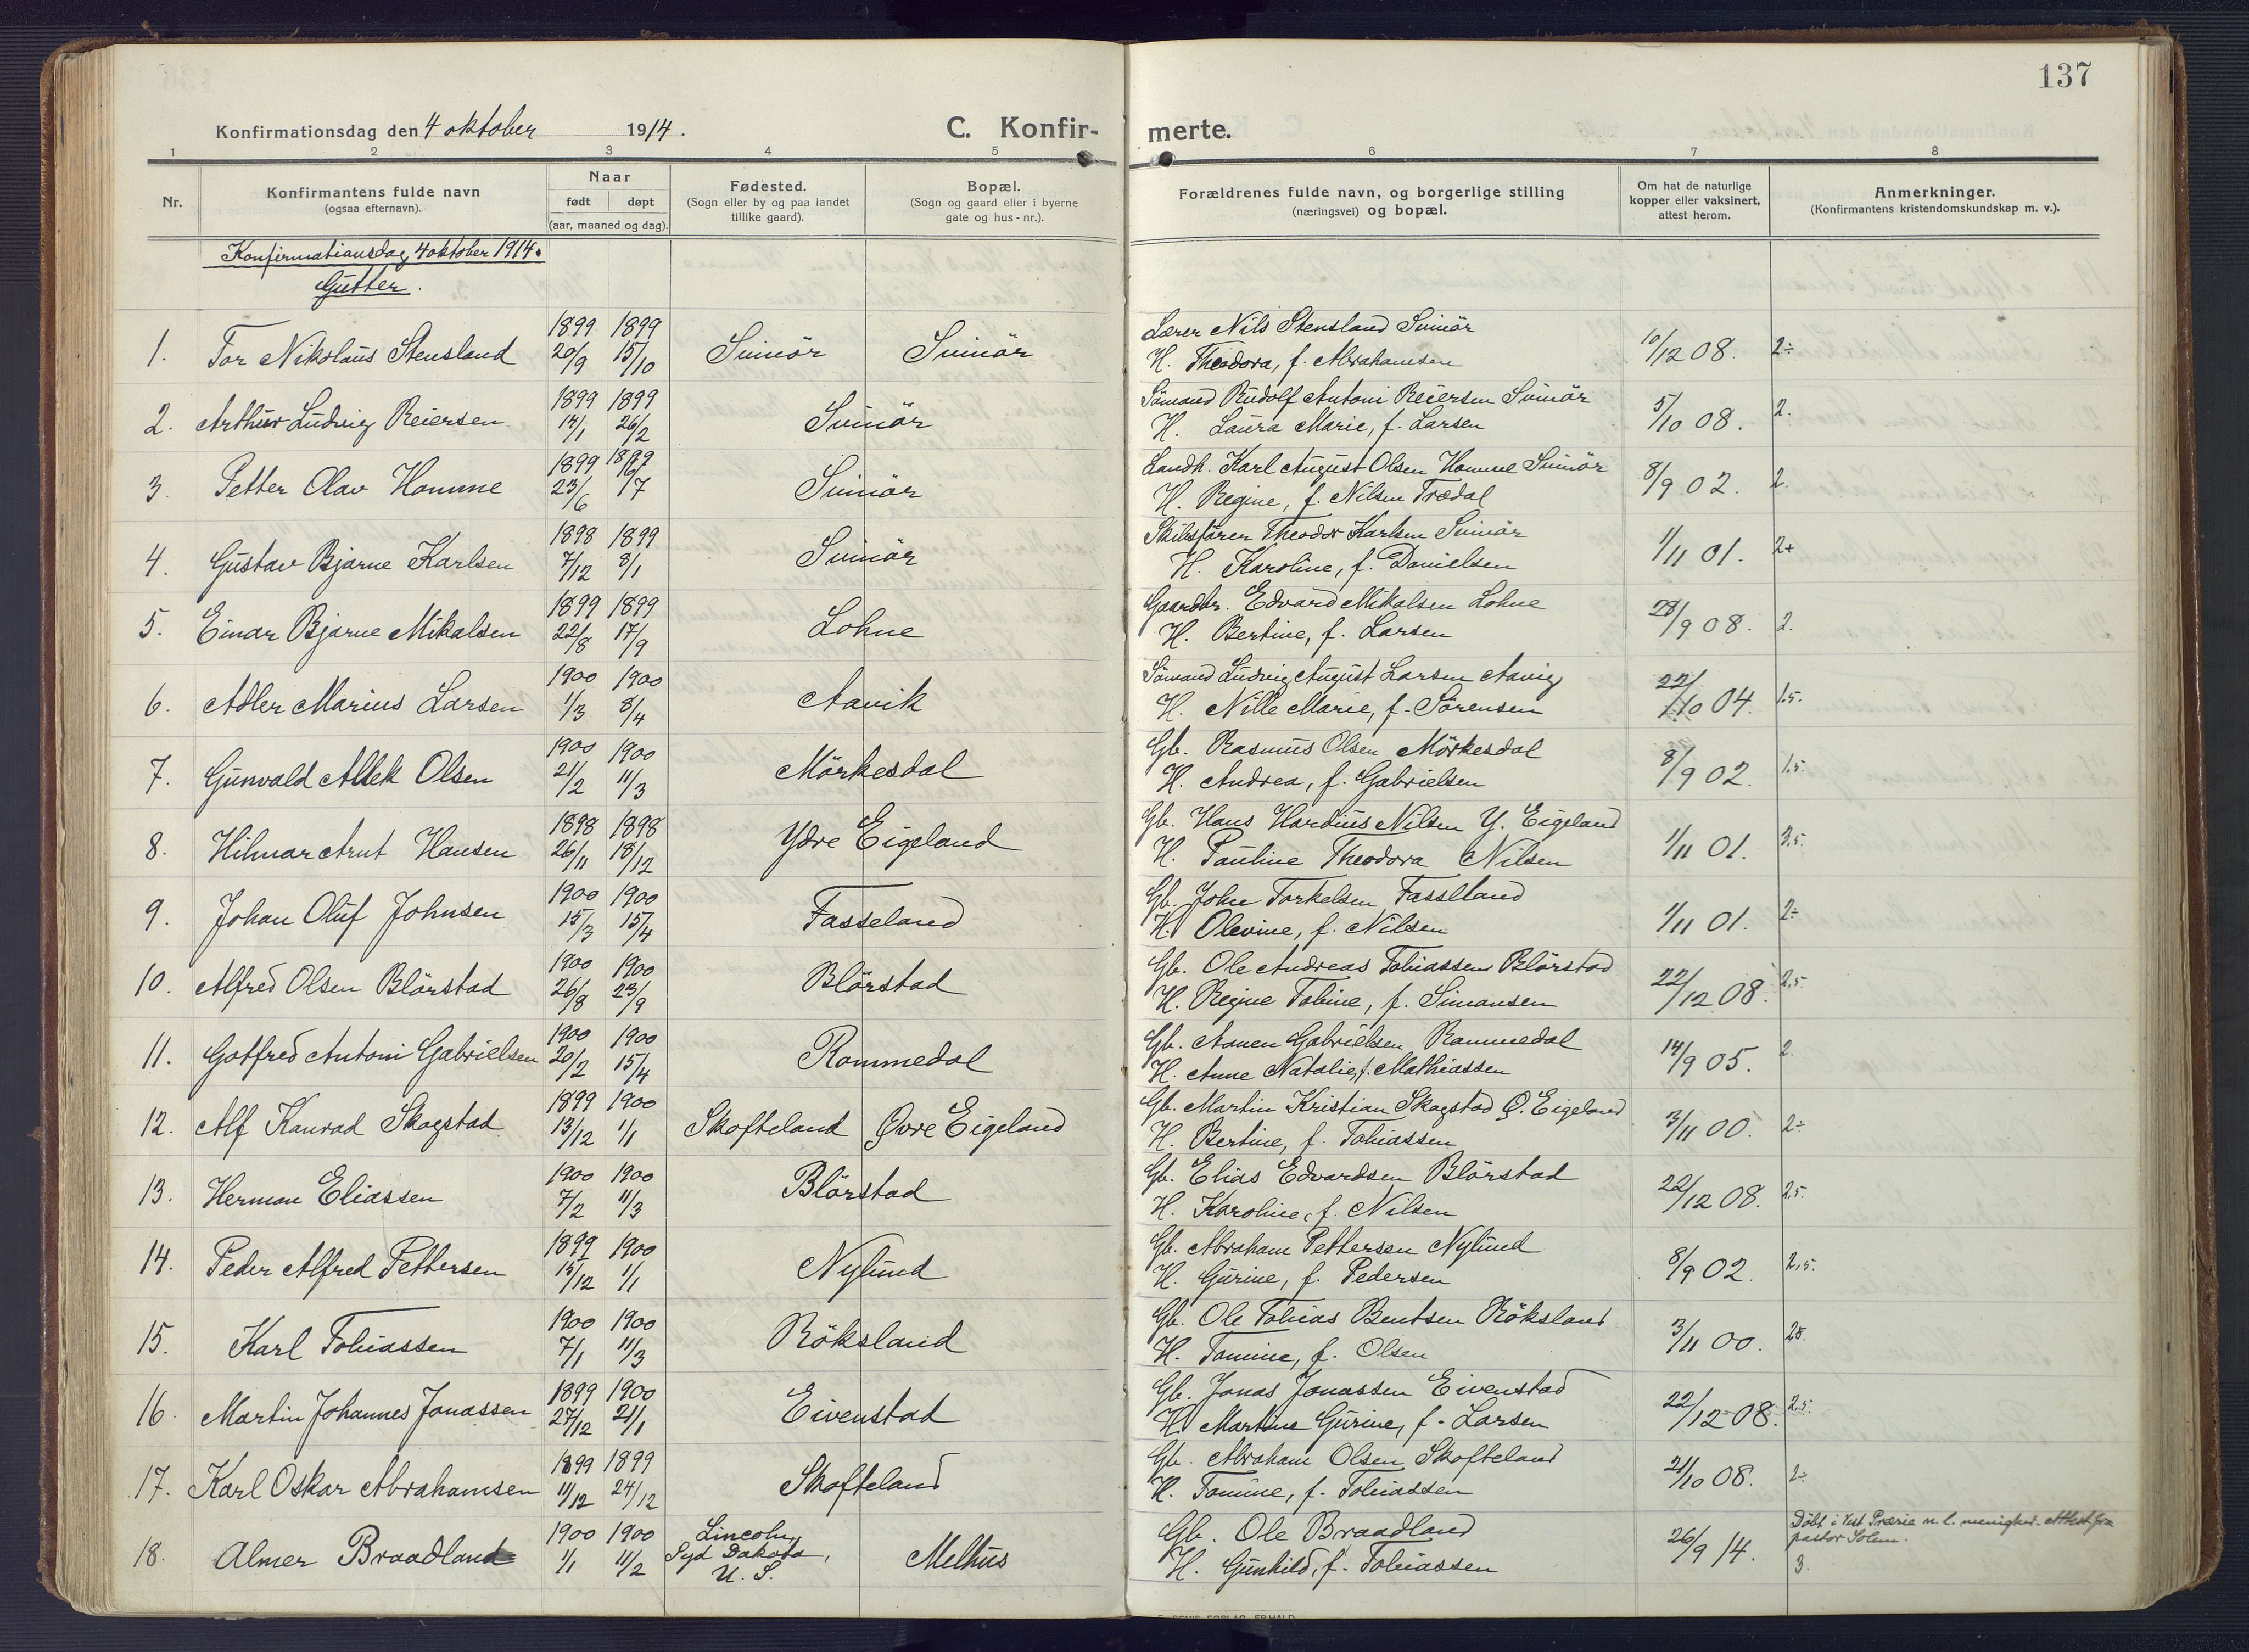 137
Konfirmationsdag den 4 oktober 1914.
C. Konfir-
merte.
1 2 3 4 5 6 7 8
Nr.
Konfirmantens fulde navn
(ogsaa efternavn).
Naar
født døpt
(aar, maaned og dag).
Fødested.
(Sogn eller by og paa landet
tillike gaard).
Bopæl.
(Sogn og gaard eller i byerne
gate og hus-nr.).
Forældrenes fulde navn, og borgerlige stilling
(næringsvei) og bopæl.
Om hat de naturlige
kopper eller vaksinert,
attest herom.
Anmerkninger.
(Konfirmantens kristendomskundskap m. v.).
Konfirmationsdag 4 oktober 1914.
Gutter.
1. Tor Nikolaus Stensland 1899 20/9 1899 15/10 Svinör Svinör
Lærer Nils Stensland Svinör
H. Theodora, f. Abrahamsen
10/12 08. 2÷
2. Arthur Ludvig Reiersen 1899 14/1 1899 26/2 Svinör
Sömand Rudolf Antoni Reiersen Svinör
H. Laura Marie, f. Larsen
5/10 08. 2.
3. Petter Olav Homme 1899 23/6 1899 17 Svinör
Landh. Karl August Olsen Homme Svinör
H. Regine, f. Nilsen Trædal
8/9 02. 2.
4. Gustav Bjarne Karlsen 1898 7/12 1899 8/1 Svinör
Skibsförer Theodor Karlsen Svinör
H. Karoline, f. Danielsen
1/11 01. 2+
5. Einar Bjarne Mikalsen 1899 22/8 1899 17/9 Lohne
Gaardbr. Edvard Mikalsen Lohne
H. Bertine, f. Larsen
28/9 08. 2.
6. Adler Marius Larsen 1900 1/3 1900 8/4 Aavik
Sömand Ludvig August Larsen Aavig
H. Nille Marie, f. Sörensen
22/10 04. 1.5.
7. Gunvald Allek Olsen 1900 21/2 1900 11/3 Mörkesdal
Gb. Rasmus Olsen Mörkesdal
H. Andrea, f. Gabrielsen
8/9 02. 1.5.
8. Hilmar Arnt Hansen 1898 26/11 1898 18/12 Ydre Eigeland
Gb. Hans Hardius Nilsen Y. Eigeland
H. Pauline Theodora Nilsen
1/11 01. 3.5.
9. Johan Oluf Johnsen 1900 15/3 1900 15/4 Fasseland
Gb. John Torkelsen Fasseland
H. Olevine, f. Nilsen
1/11 01. 2÷
10. Alfred Olsen Blörstad 1900 26/8 1900 23/9 Blörstad
Gb. Ole Andreas Tobiassen Blörstad
H. Regine Tobine, f. Simonsen
22/12 08. 2.5.
11. Gotfred Antoni Gabrielsen 1900 20/2 1900 15/4 Rommedal
Gb. Aanen Gabrielsen Rommedal
H. Anne Natalie, f. Mathiassen
14/9 05. 2.
12. Alf Konrad Skogstad 1899 13/12 1900 1/1 Skofteland Övre Eigeland
Gb. Martin Kristian Skogstad Ö. Eigeland
H. Bertine, f. Tobiassen
3/11 00. 2÷
13. Herman Eliassen 1900 7/2 1900 11/3 Blörstad
Gb. Elias Edvardsen Blörstad
H. Karoline, f. Nilsen
22/12 08. 2.5.
14. Peder Alfred Pettersen 1899 15/12 1900 1/1 Nylund
Gb. Abraham Pettersen Nylund
H. Gurine, f. Pedersen
8/9 02. 2.5.
15. Karl Tobiassen 1900 7/1 1900 11/3 Röksland
Gb. Ole Tobias Bentsen Röksland
H. Tomine, f. Olsen
3/11 00. 2.5.
16. Martin Johannes Jonassen 1899 27/12 1900 21/1 Eivenstad
Gb. Jonas Jonassen Eivenstad
H. Martine Gurine, f. Larsen
22/12 08. 2.5.
17. Karl Oskar Abrahamsen 1899 11/12 1899 24/12 Skofteland
Gb. Abraham Olsen Skofteland
H. Tomine, f. Tobiassen
21/10 08. 2÷
18. Almer Braadland 1900 1/1 1900 11/2 Lincoln, Syd Dakota, U. S. Melhus
Gb. Ole Braadland
H. Gunhild, f. Tobiassen
26/9 14.
Döbt i Vest Prærie n. l. menighed. Attest fra
pastor Solem.
3.